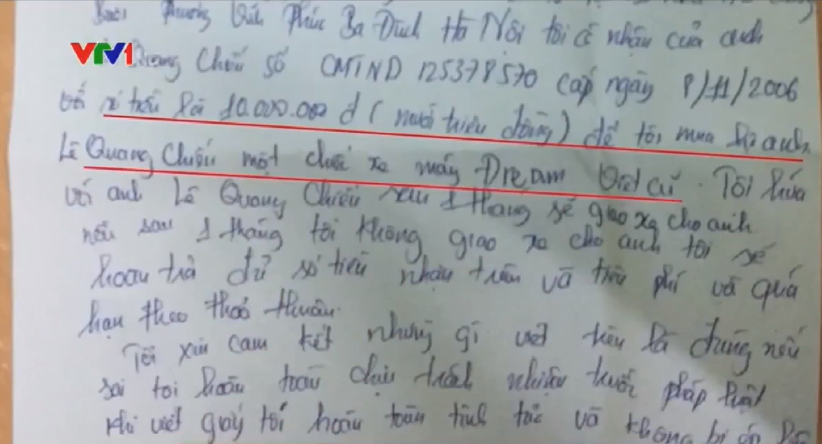 Phường Vĩnh Phúc Ba Đình Hà Nội tôi có nhận của anh
VTV1
Quang Chiểu số CMIND 125378570 cấp ngày 8/11/2006
với số tiền là 10.000.000 đ (mười triệu đồng) để tôi mua hộ anh
Lê Quang Chiểu một chiếc xe máy Dream Việt cũ. Tôi hứa
với anh Lê Quang Chiểu sau 1 tháng sẽ giao xe cho anh
nếu sau 1 tháng tôi không giao xe cho anh tôi sẽ
hoàn trả đủ số tiền nhận trên và tiền phí và quá
hạn theo thoả thuận.
Tôi xin cam kết những gì viết trên là đúng nếu
sai tôi hoàn toàn chịu trách nhiệm trước pháp luật
Khi viết giấy tôi hoàn toàn tỉnh táo và không bị ép